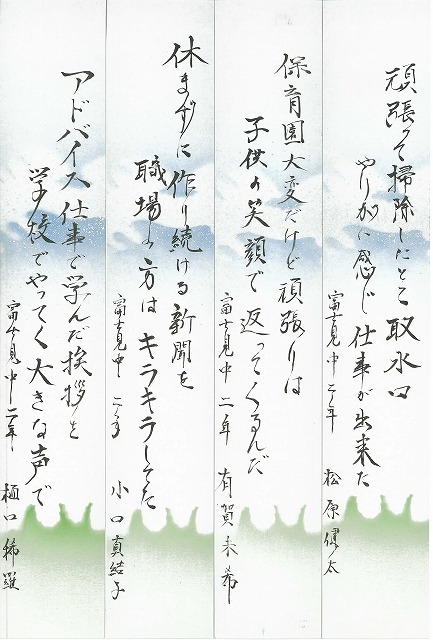 頑張って掃除したとこ取水口
やりがい感じ仕事が出来た
富士見中二年 松原健太
保育園大変だけど頑張りは
子供の笑顔で返ってくるんだ
富士見中二年 有賀未希
休まずに作り続ける新聞を
職場の方はキラキラしてた
富士見中二年 小口真結子
アドバイス仕事で学んだ挨拶を
学校でやってく大きな声で
富士見中二年 樋口稀羅